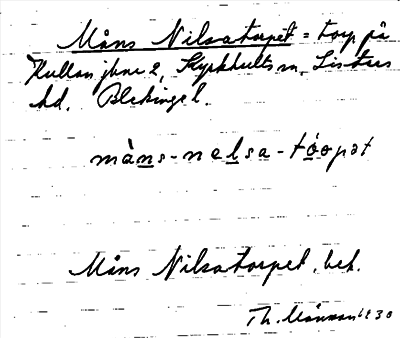 Måns Nilsatorpet = torp på
Kullan j:bne 2, Kyrkhults sn, Listers
hd. Blekinge l.
màns-nelsa-tóopət
Måns Nilsatorpet, bek.
Th.